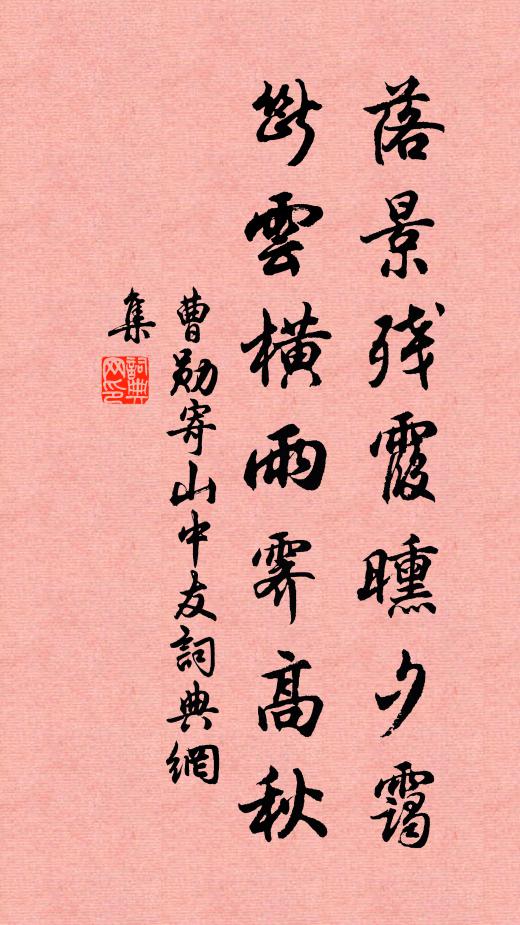 落景残霞曛夕靄
斷雲橫雨霽高秋
曹勛寄山中友詞典網
集
詞典網印